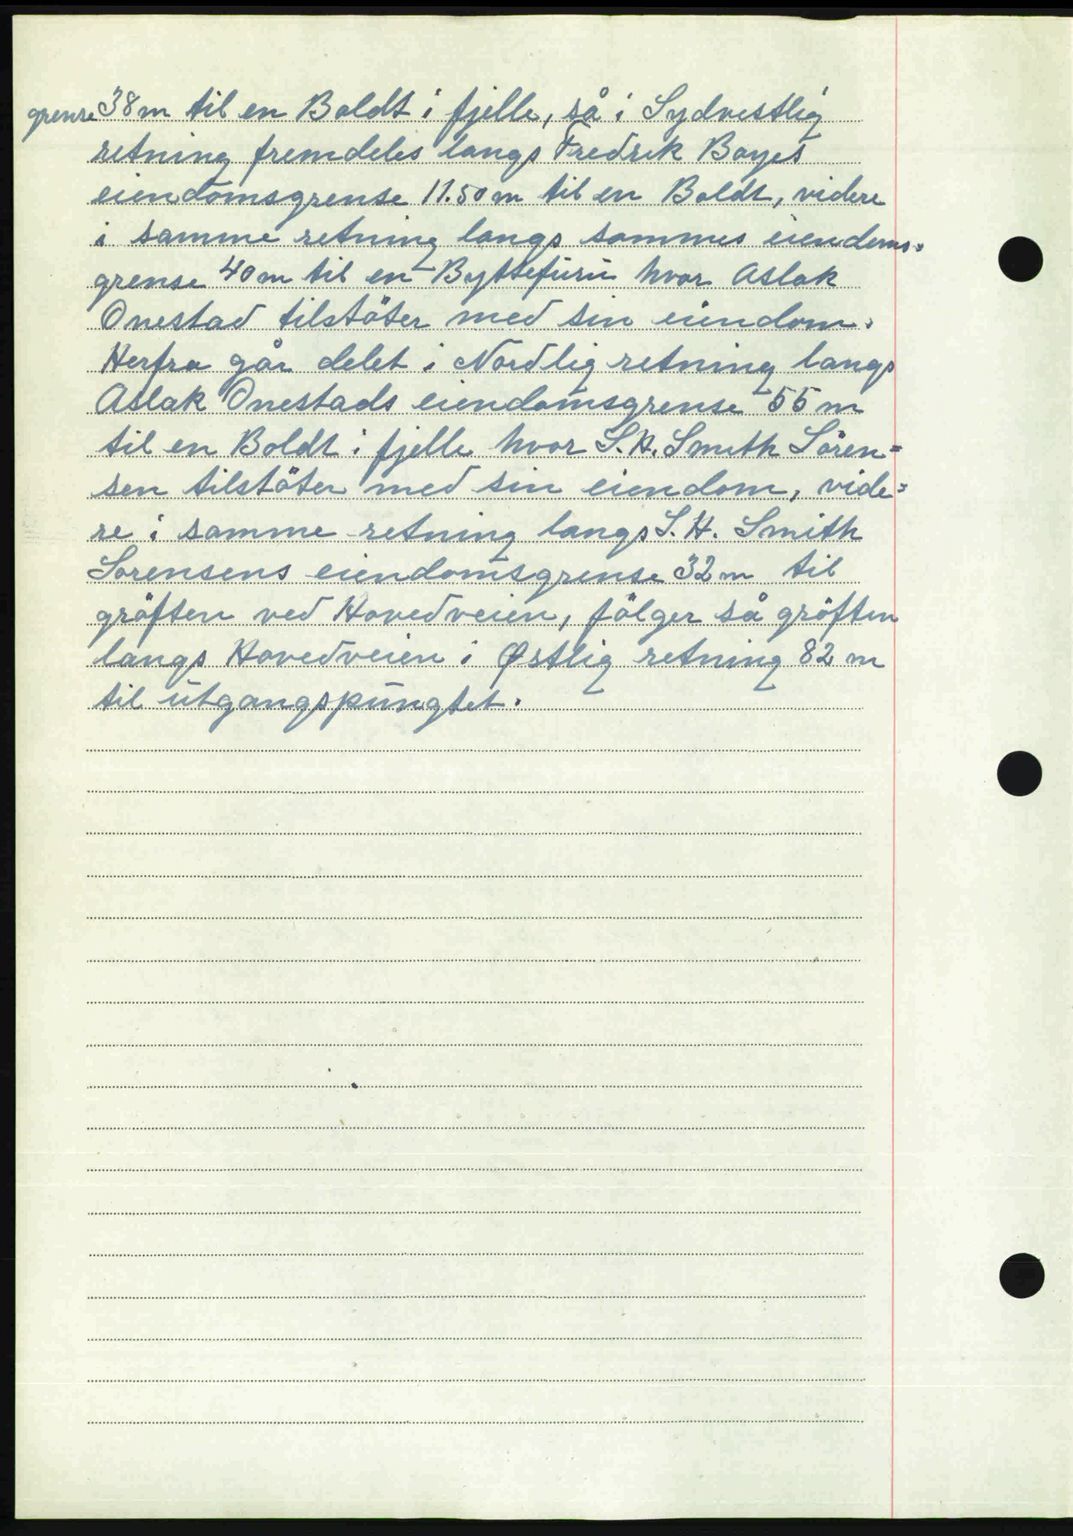 grense 38 m til en Boldt i fjelle, så i Sydvestlig
retning fremdeles langs Fredrik Boyes
eiendomsgrense 11.50 m til en Boldt, videre
i samme retning langs sammes eiendoms=
grense 40 m til en Byttefuru hvor Aslak
Onestad tilstöter med sin eiendom.
Herfra går delet i Nordlig retning langs
Aslak Onestads eiendomsgrense 55 m
til en Boldt i fjelle hvor S. H. Smith Sören=
sen tilstöter med sin eiendom, vide=
re i samme retning langs S. H. Smith
Sorensens eiendomsgrense 32 m til
gröften ved Hovedveien, fölger så gröften
langs Hovedveien i Østlig retning 82 m
til utgangspungtet.